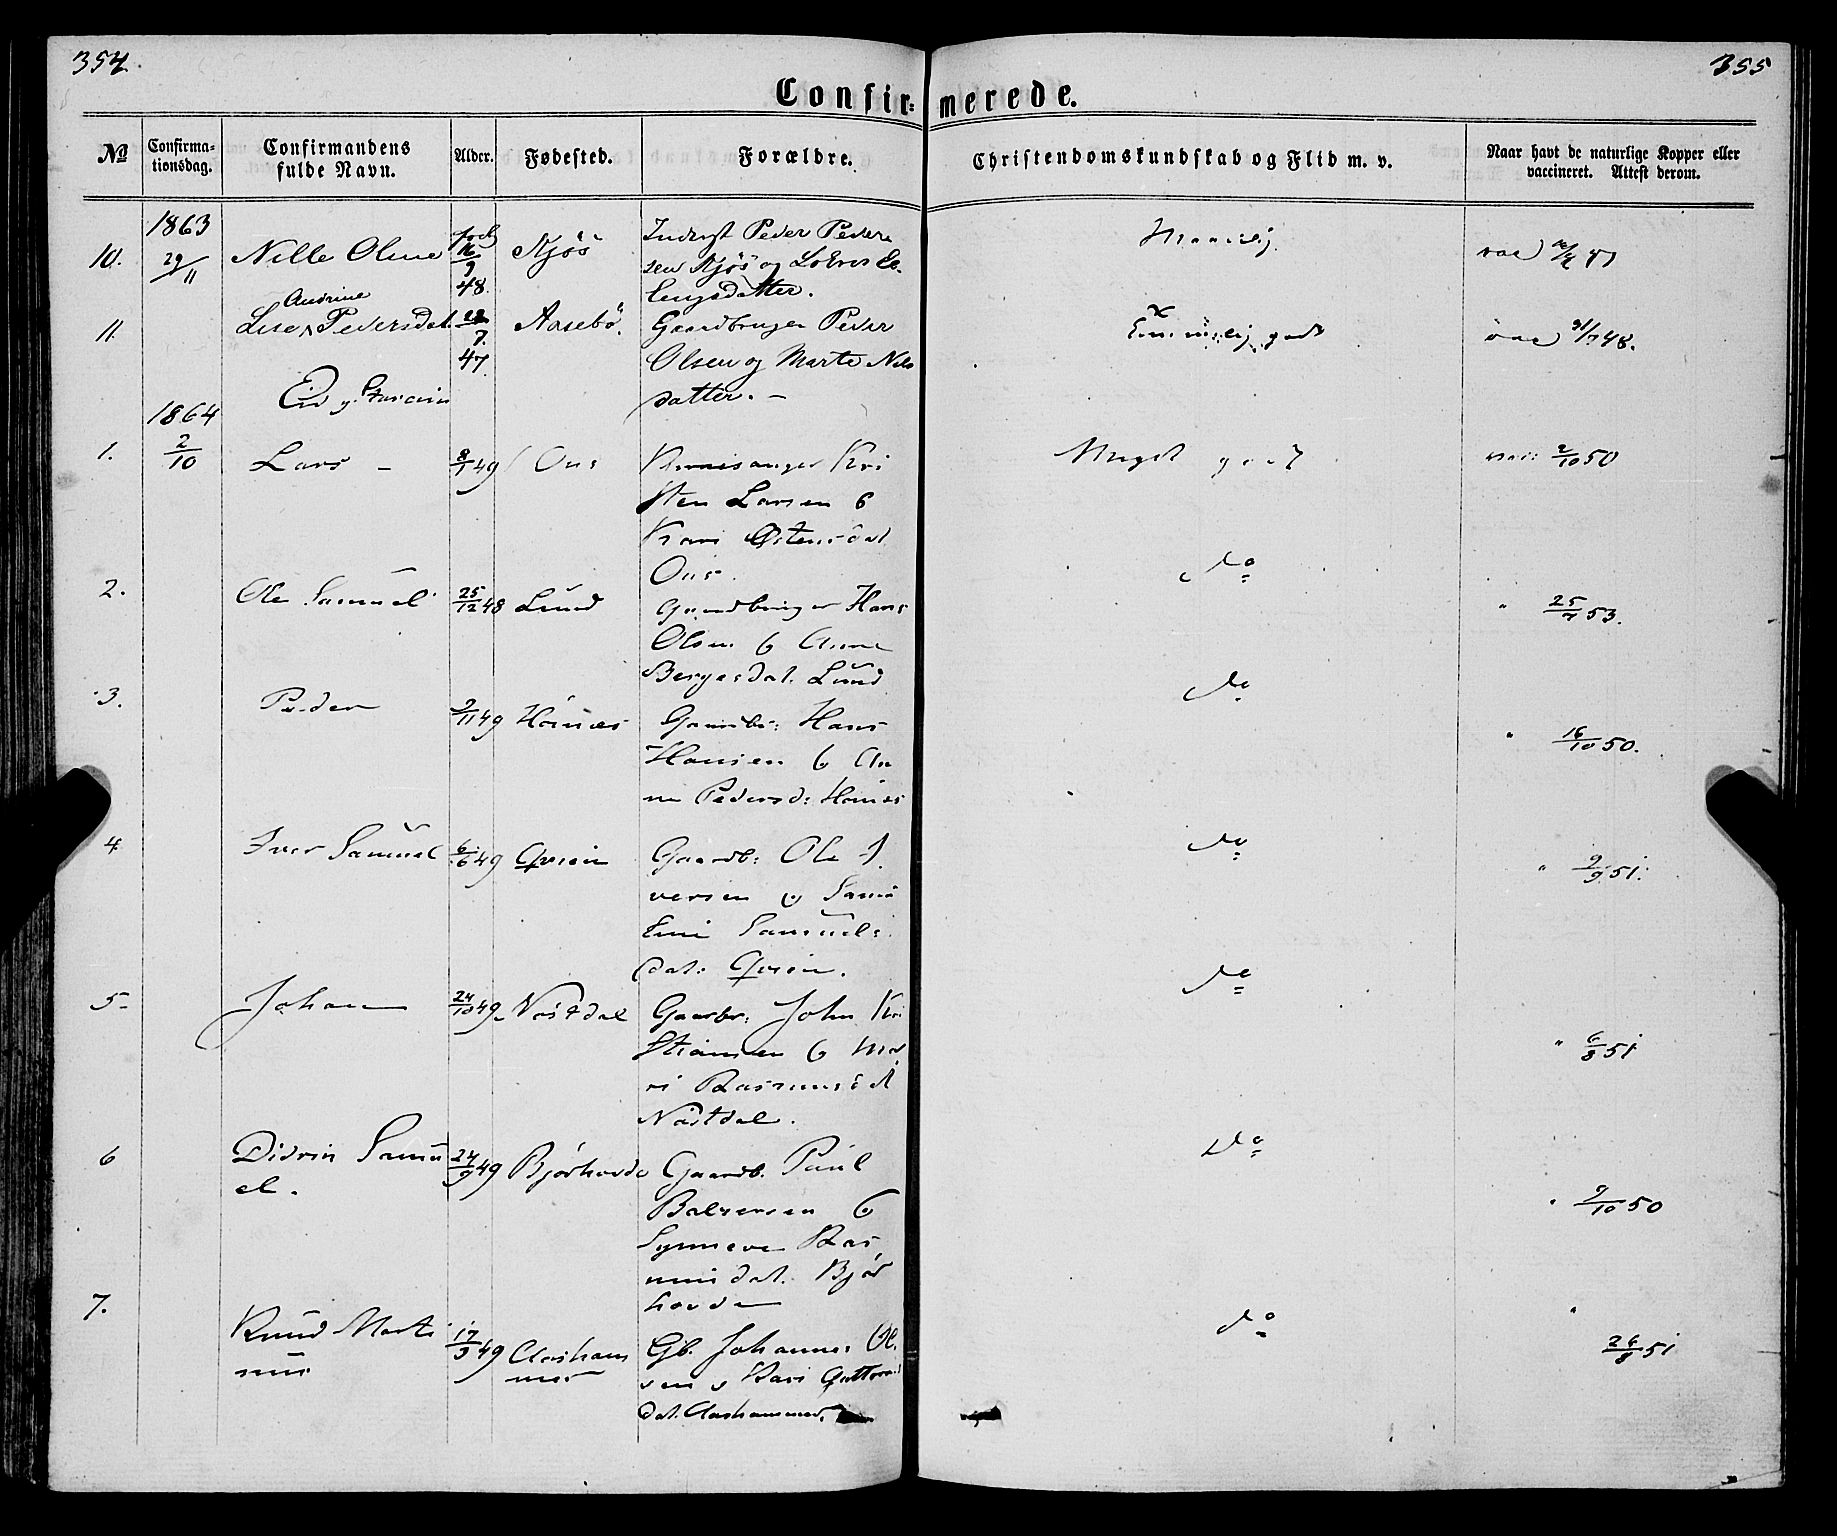 354.
355
Confir- merede.
No
Confirma-
tionsdag.
Confirmandens
fulde Navn.
Alder.
Fødested.
Forældre.
Christendomskundskab og Flid m. v.
Naar havt de naturlige Kopper eller
vaccineret. Attest derom.
1863
10. 29/11 Nille Oline 16/9 48. Njøs
Peder Peder
sen Njøs og
lengsdatter.
vac
11. Lise Andrine Pedersdat. 7. 47 Aasebö.
Gaardbruger Peder
Olsen og Marte Nils
datter. –
godt
48.
1864
1. 2/10 Lars – 8/1 49 Ous
Kirkesanger Kri
sten Larsen &
Kari Østensdat
Ous.
Meget godt
vac: 2/10 50
2. Ole Samuel 25/12 48 Lund
Gaardbruger Hans
Olsen & Anne
Bergesdat. Lund
do
" 25/7 53.
3. Peder 9/11 49 Hönnes
Gaardbr: Hans
Hansen & An
ne Pedersd: Hönnes
do
" 16/10 50.
4. Iver Samuel 6/6 49 Qvien
Gaardb: Ole I
versen & Samu
Samuels
dat: Qvien.
do
" 9/9 51.
5 Johan 24/10 49 Nöstdal
Gaarbr: John Kri
stiansen & Ma
ri Rasmusdt
Nöstdal.
do
" 6/8 51
6 Didrik Samu
el. 24/9 49 Bjørhovde
Gaardb. Paul
Balzersen &
Synneve Ras
musdat. Bjør
hovde
do
" 9/10 50
7. Knud Marti
nus 17/9 49 Aasham
mer
Gb. Johannes Ol.
sen & Kari Guttorms
dat. Aashammer.
do
" 26/8 51